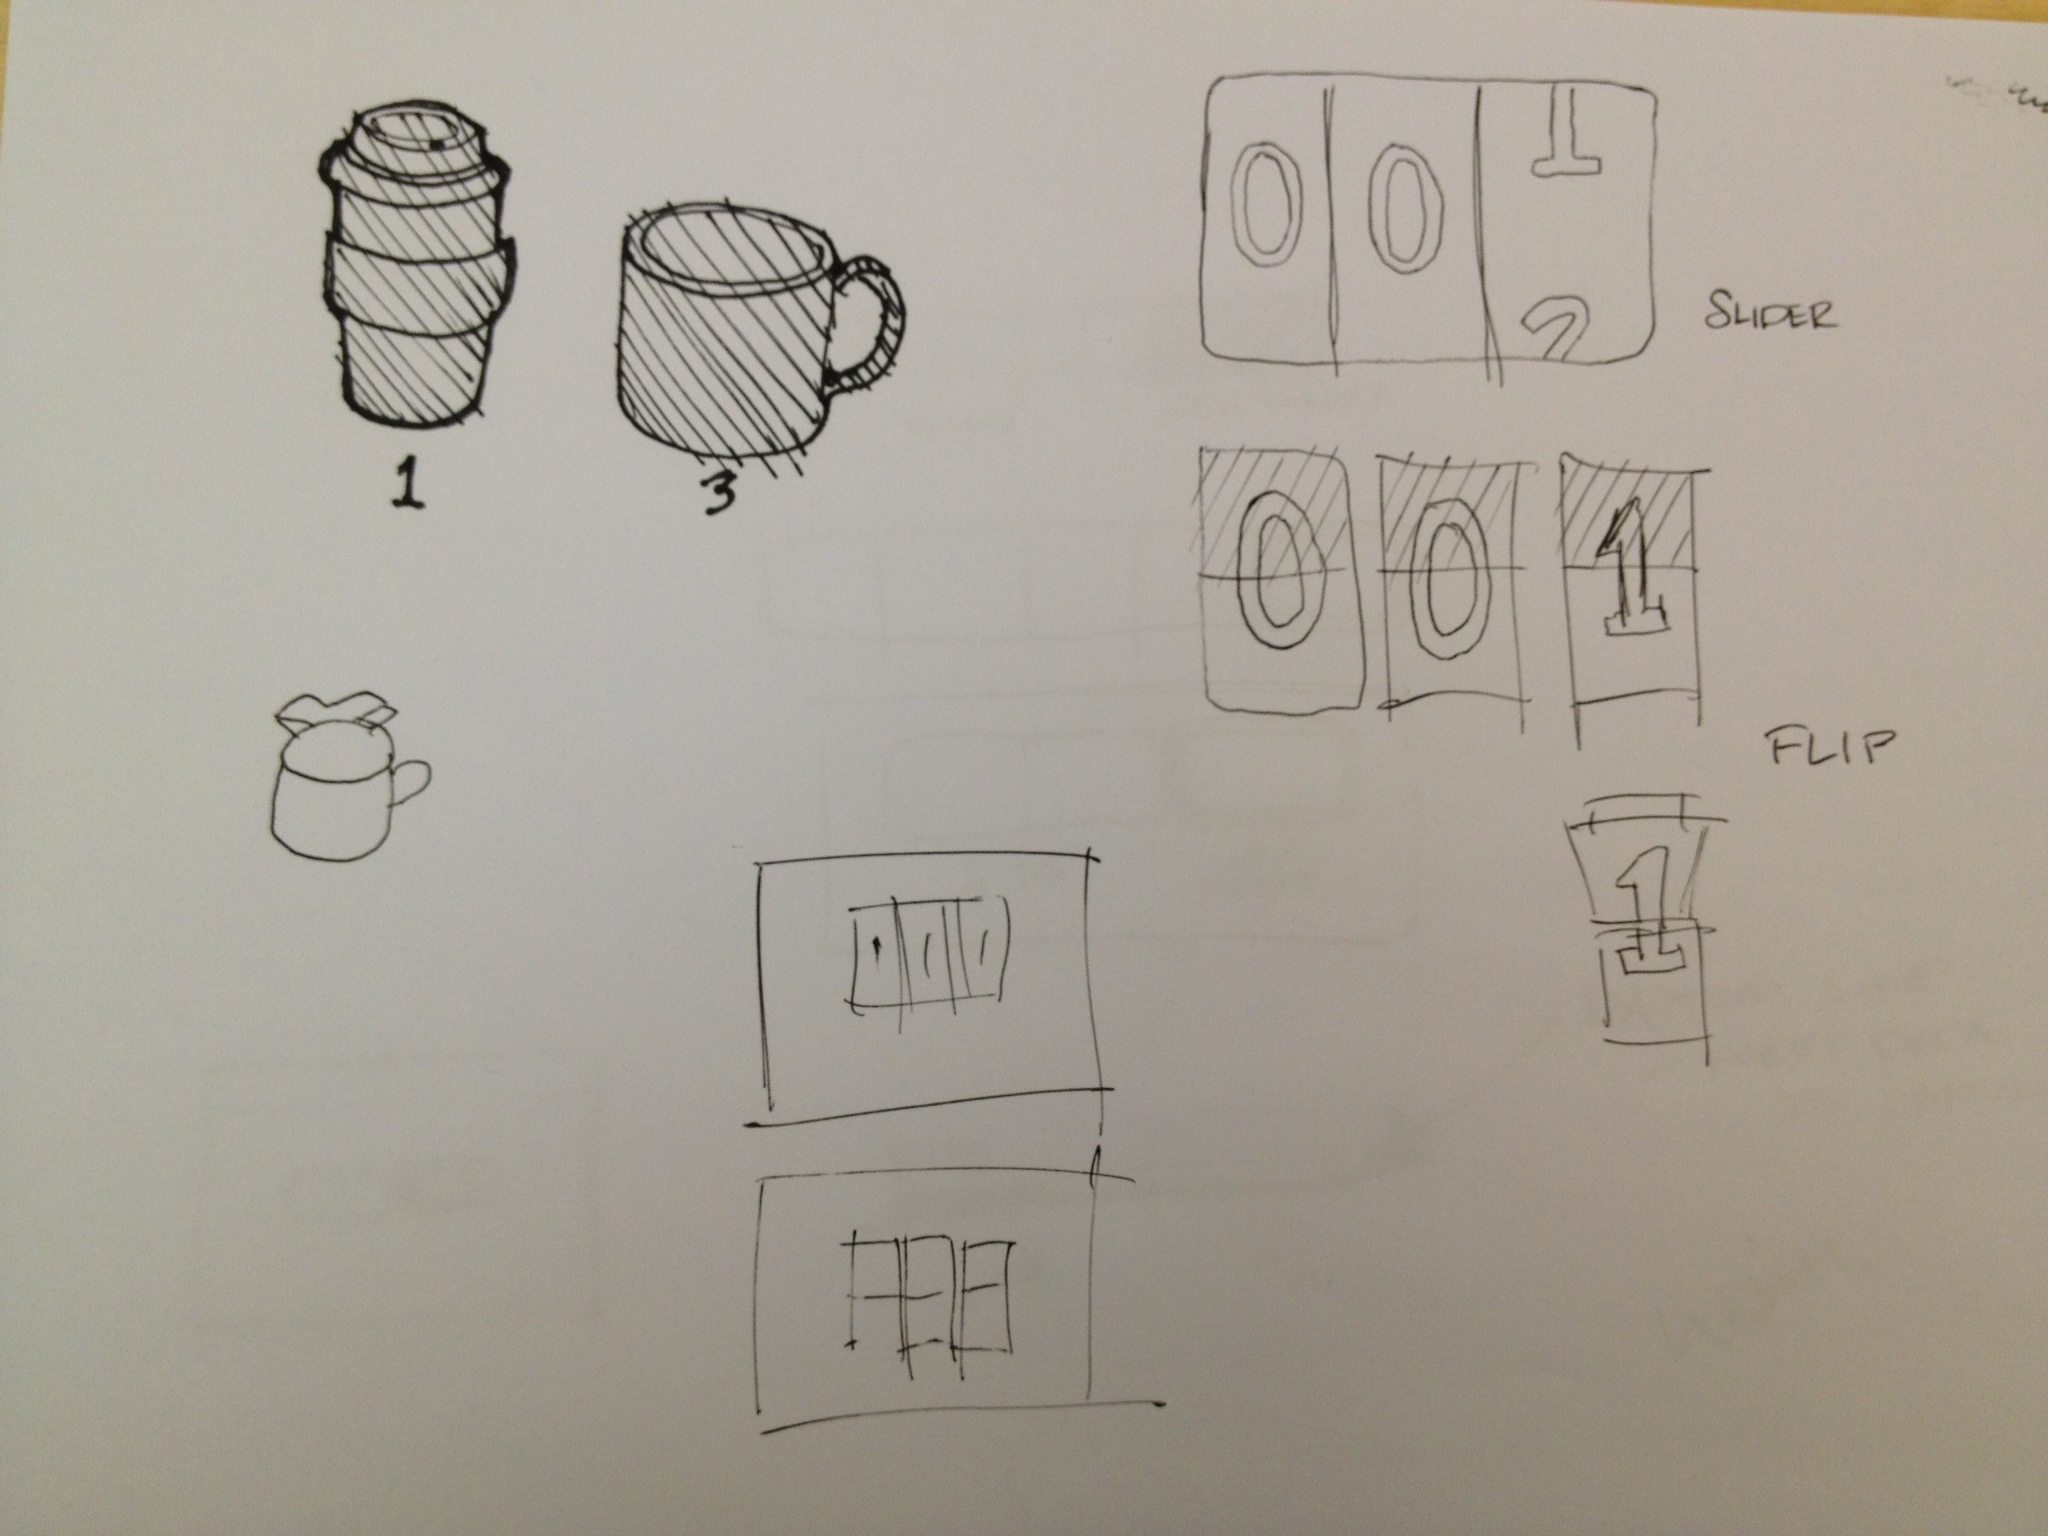 1
3
0 0 1
2
SLIDER
0 0 1
FLIP
1